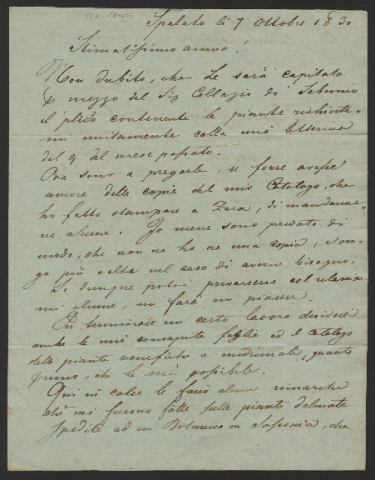 Spalato li 7 Ottobre 1830
Stimatissimo amico!
Non dubito, che Le sarà capitato
per mezzo del Sig Collegio di Sebenico
il plico contenente le piante richieste-
mi unitamente colla mia letterina
del 9 al mese passato.
Ora sono a pregarla, se forse avesse
ancora delle copie del mio Catalogo, che
ho fatto stampare a Zara, di mandarme-
ne alcune. Io mene sono privato, di
modo, che non ne ho ne una copia,
più nel caso di averne bisogno.
Se dunque potrà privarsene ed
mi alcune, mi farà un piacere.
Per terminare un certo lavoro
anche le mie consapute foglie ed il Catalogo
delle piante venefiche e medicinali, quanto
primo, che le sarà possibile.
Qui in calce le farò alcune rimarche
che mi furono fatte sulle piante dalmate
spedite ad un Botanico in Sassonia, che